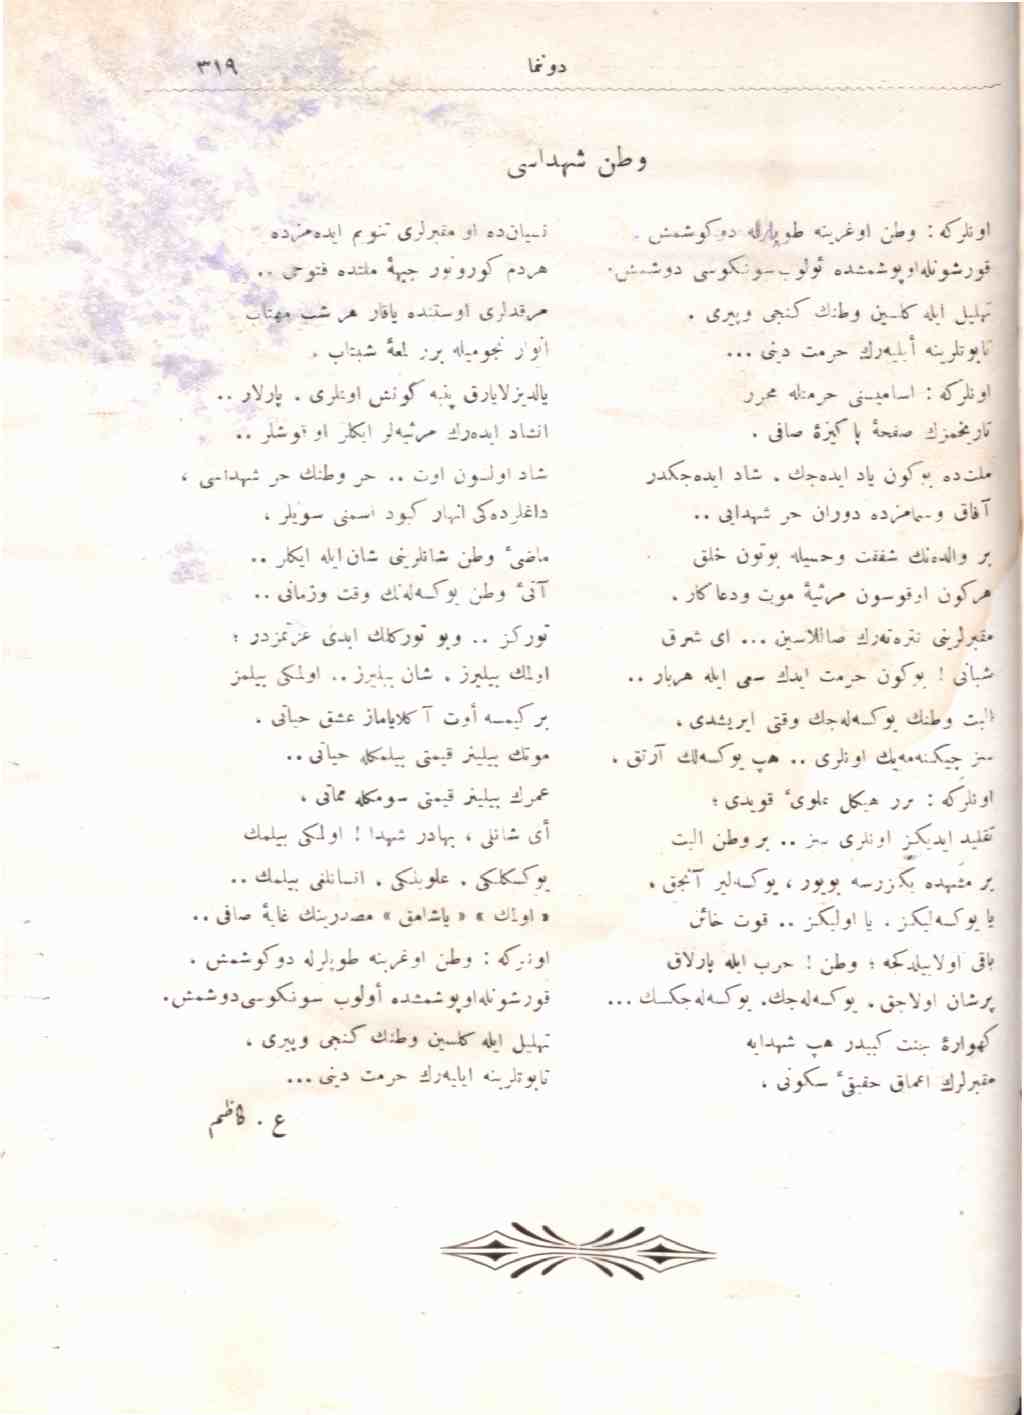 دوننما
٣١٩
وطن شهداسی
اونلركه : وطن اوغرینه طوپلرله دوكوشمش .
قورشونله اوپوشمشده ئولوب سونكوسی دوشمش.
تهلیل ایله كلسین وطنك كنجی وپیری .
تابوتلرینه أیلیه‌رك حرمت دینی ...
اونلركه : اسامیسنی حرمتله محرر
تاریخمزك صفحهٔ پاكیزهٔ صافی .
ملت‌ده بوكون یاد ایده‌جك . شاد ایده‌جكدر
آفاق وسمامزده دوران حر شهدایی ..
بر والده‌نك شفقت وحسیله بوتون خلق
هركون اوقوسون مرثیهٔ موت ودعا كار .
مقبرلرینی تتره‌ته‌رك صاللاسین ... ای شرق
شبانی ! بوكون حرمت ایدك سعی ایله هربار ..
البت وطنك یوكسه‌له‌جك وقتی ایریشدی .
سز چیكنه‌مه‌یك اونلری .. هپ یوكسه‌لك آرتق .
اونلركه : برر هیكل علویٔ قویدی ؛
تقلید ایدیكز اونلری سز .. بر وطن البت
بر مشهده بكزرسه بویور ، یوكسه‌لیر آنجق .
یا یوكسه‌لیكز . یا اولیكز .. قوت خائن
باقی اولابیلدكجه ؛ وطن ! حرب ایله پارلاق
پرشان اولاجق . یوكسه‌له‌جك. یوكسه‌له‌جكسك ...
كهوارهٔ جنت كبیدر هپ شهدایه
مقبرلرك اعماق حقیقیٔ سكونی .
نسیان‌ده او مقبرلری تنویم ایده‌مزده
هردم كورونور جبههٔ ملتده فتوحی ..
مرقدلری اوستنده یاقار هر شب مهتاب
انوار نجومیله برر لمعهٔ شبتاب .
یالدیزلایارق پنبه كونش اوتلری . پارلار ..
انشاد ایده‌رك مرثیه‌لر ایكلر او قوشلر ..
شاد اولسون اوت .. حر وطنك حر شهداسی ،
داغلرده‌كی انهار كبود اسمنی سویلر ،
ماضیٔ وطن شانلرینی شان ایله ایكلر ..
آتیٔ وطن یوكسه‌له‌نك وقت وزمانی ..
توركز .. وبو توركلك ابدی عزتمزدر ؛
اولمك بیلیرز . شان بیلیرز .. اولمكی بیلمز
بر كیمسه أوت آكلایاماز عشق حیاتی .
موتك بیلینیر قیمتی بیلمكله حیاتی ..
عمرك بیلینیر قیمتی سومكله مماتی ،
أی شانلی ، بهادر شهدا ! اولمكی بیلمك
یوكسكلكی . علویتكی . انسانلغی بیلمك ..
« اولمك » « یاشامق » مصدرینك غایهٔ صافی ..
اونلركه : وطن اوغرینه طوپلرله دوكوشمش .
قورشونله اوپوشمشده أولوب سونكوسی دوشمش.
تهلیل ایله كلسین وطنك كنجی وپیری ،
تابوتلرینه ایلیه‌رك حرمت دینی ...
ع . كاظم